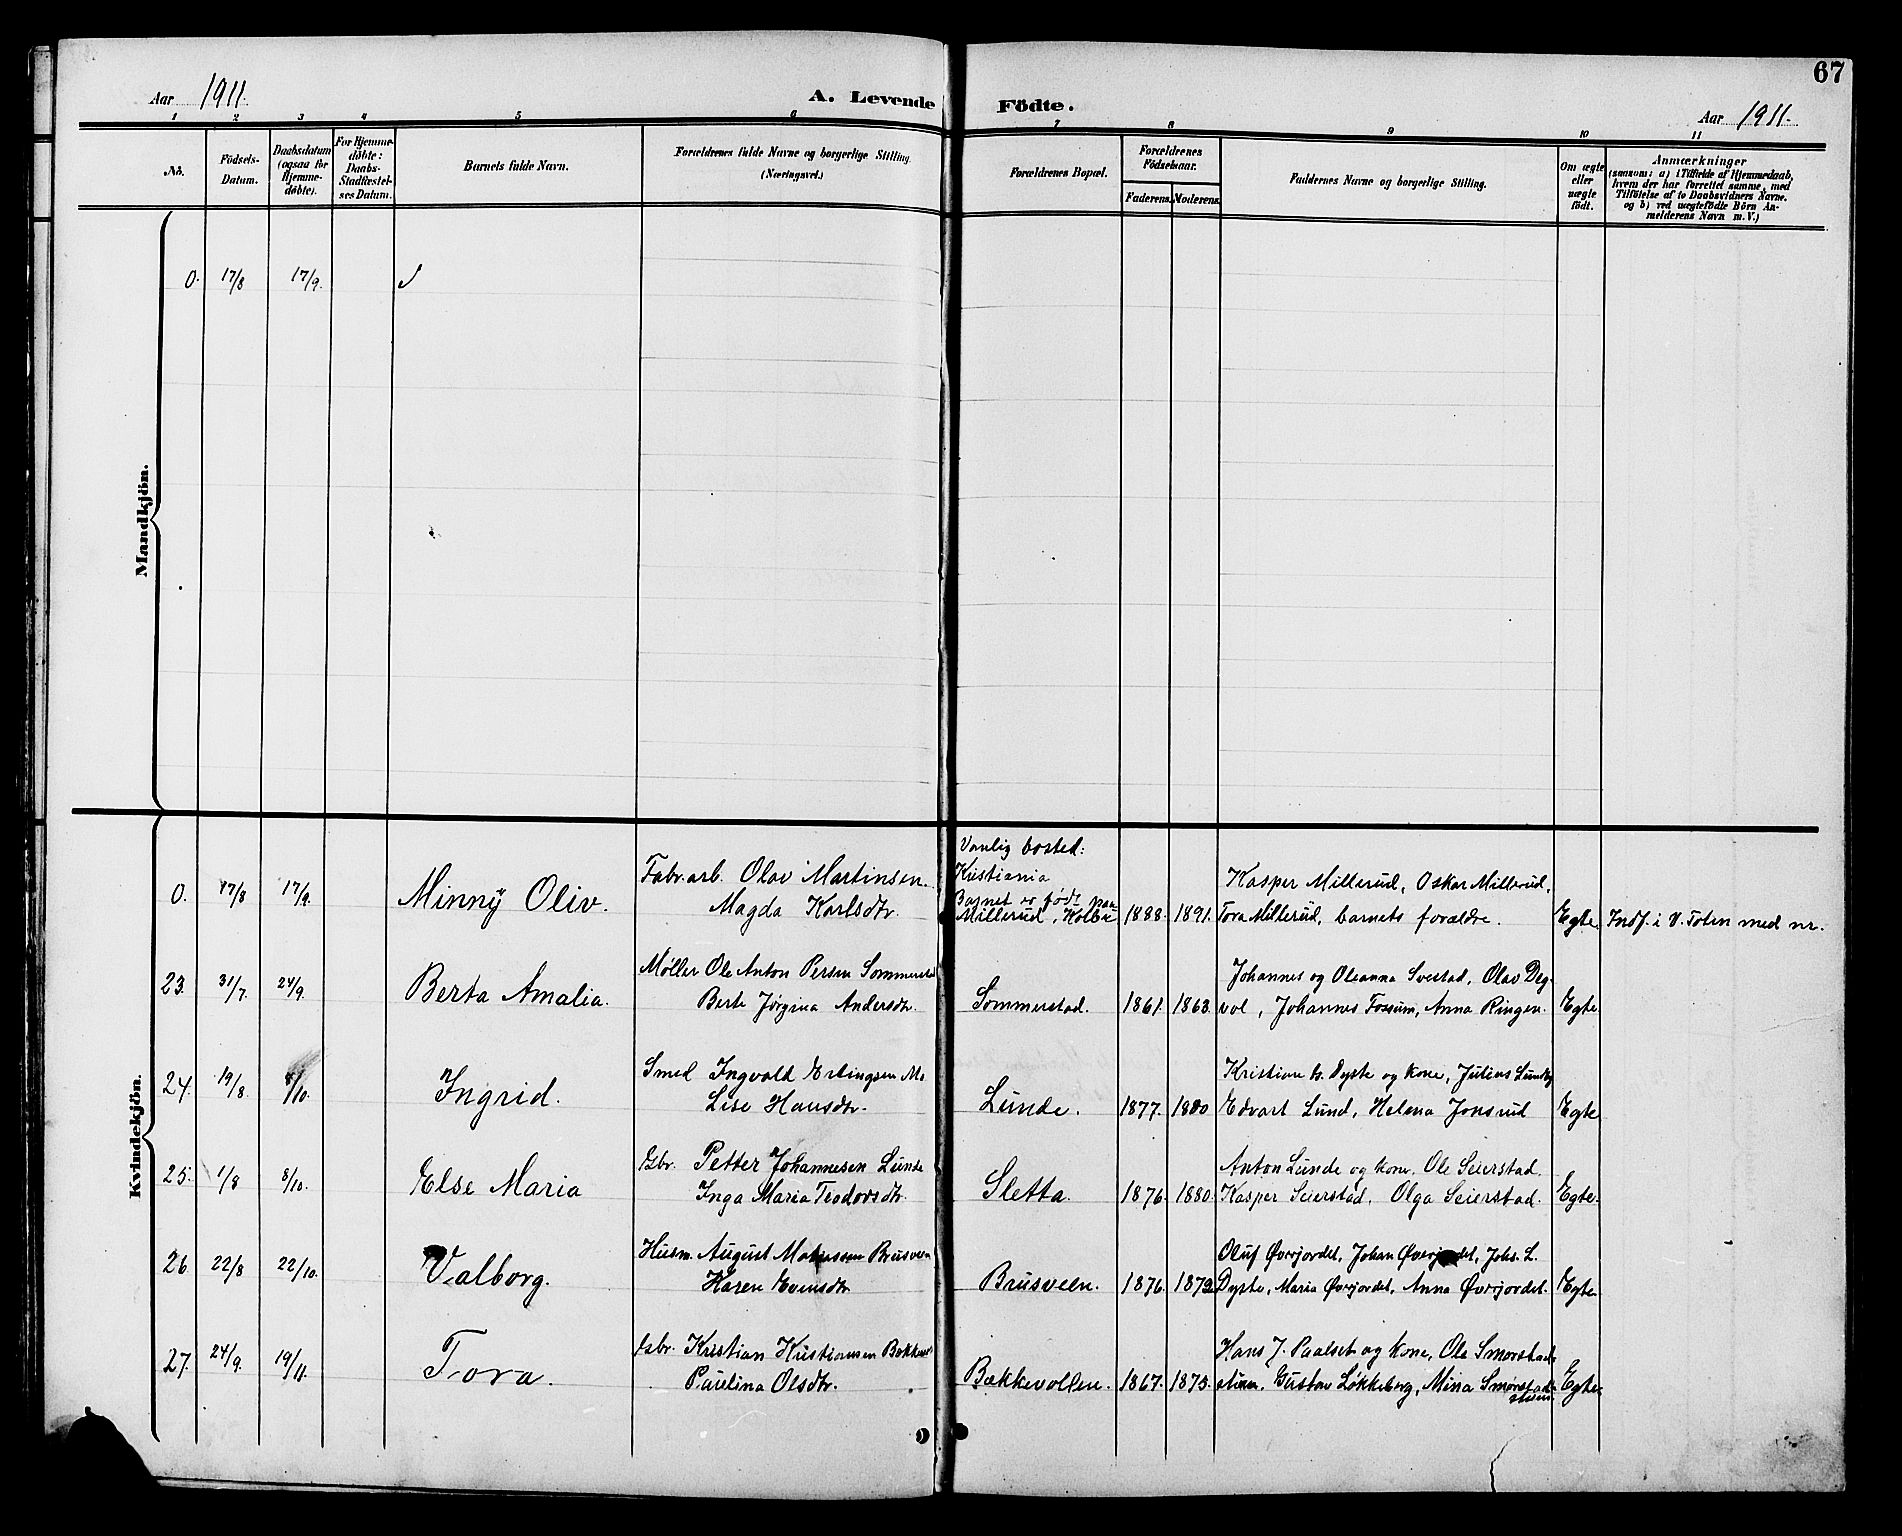 67
Aar 1911.
A. Levende Födte.
Aar 1911.
1 2 3 4 5 6 7 8 9 10 11
No.
Födsels-Datum.
Daabsdatum (ogsaa for Hjemme-döbte).
For Hjemme-döbte: Daabs-Stadfæstel-ses Datum.
Barnets fulde Navn.
Forældrenes fulde Navne og borgerlige Stilling. (Næringsvei.)
Forældrenes Bopæl.
Forældrenes Födselsaar.
Faderens. Moderens.
Faddernes Navne og borgerlige Stilling.
Om ægte eller uægte födt.
Anmærkninger
(saasom: a) i Tilfælde af Hjemmedaab,
hvem der har forrettet samme, med
Tilföielse af to Daabsvidners Navne.
og b) ved uægtefödte Börn An-
melderens Navn m. V.)
Mandkjön.
0. 17/8 17/9.
Kvindekjön.
Vanlig bosted:
Kristiania
0. 17/8 17/9. Minny Oliv. Fabr.arb. Olav Martinsen.
Magda Karlsdtr.
Barnet er født paa
Millerud, Kolbu 1888. 1891.
Kasper Millerud, Oskar Millerud,
Tora Millerud, barnets forældre. Egte. Indf. i V. Toten med nr.
23. 31/7. 24/9. Berta Amalia. Møller Ole Anton Persen Sommerstad
Berte Jørgina Andersdtr. Sommerstad. 1861. 1863.
Johannes og Oleanna Svestad, Olav Deg-
vol, Johannes Fossum, Anna Ringen. Egte
24. 19/8. /10. Ingrid. Smed Ingvald Erlingsen
Lise Hansdtr. Lunde. 1877. 1880
Kristian Dyste og kone, Julius Lundby
Edvart Lund, Helena Jonsrud Egte
25. 1/8 8/10. Else Maria Gbr. Petter Johannesen Lunde
Inga Maria Teodorsdtr. Sletta. 1876. 1880.
Anton Lunde og kone, Ole Seierstad.
Kasper Seierstad, Olga Seierstad. Egte.
26. 22/8 22/10. Valborg. Husm. August Brusveen
Karen Evensdtr. Brusveen. 1876.
Oluf Øvrjordet, Johan Øvrjordet, Johs. L.
Dyste, Maria Øvrjordet, Anna Øvrjordet. Egte
27. 24/9. 19/11. Tora. Gbr. Kristian Kristiansen
Paulina Olsdtr. Bækkevollen. 1867. 1875.
Hans J. Paalset og kone, Ole Smørstad-
stuen. Gustav Løkkeberg, Mina Smørstad-
stuen. Egte.